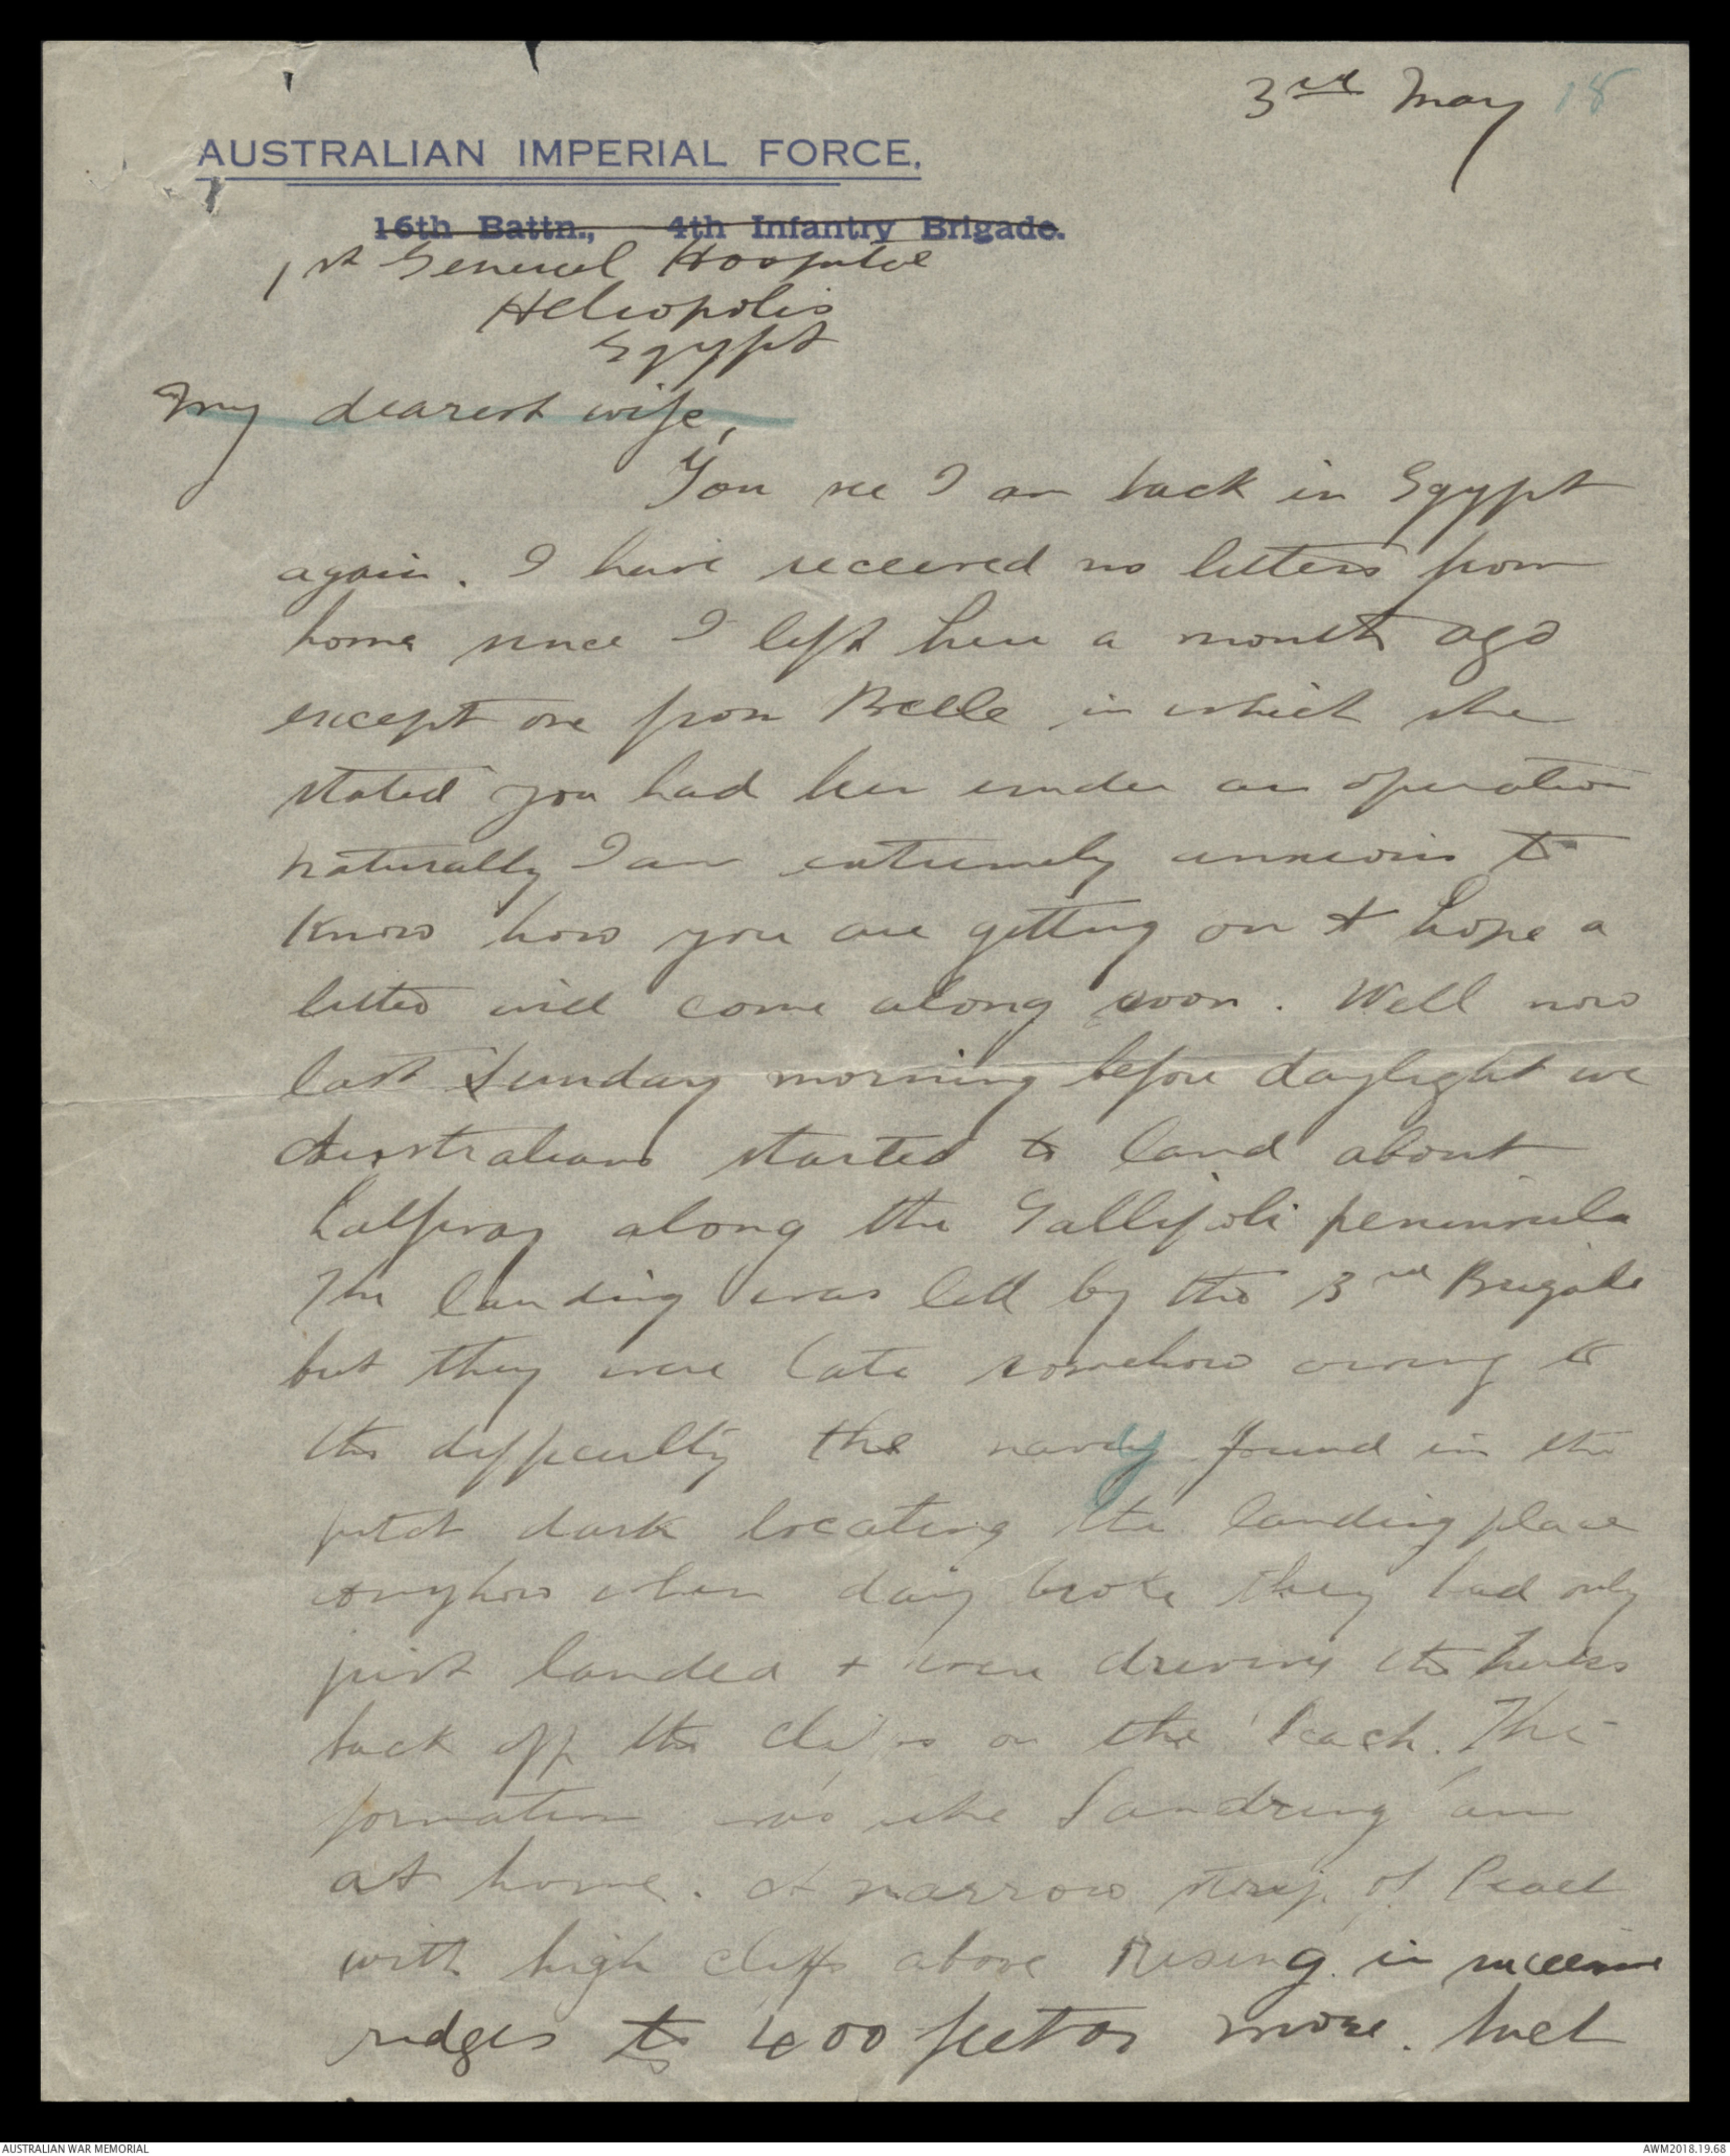 3rd May 15
AUSTRALIAN IMPERIAL FORCE.
16th Battn., 4th Infantry Brigade.
1st General Hospital
Heliopolis
Egypt
My dearest wife,
You see I am back in Egypt
again. I have received no letters from
home since I left here a month ago
except one from Belle in which she
stated you had been under an operation
naturally I am extremely anxious to
know how you are getting on & hope a
letter will come along soon. Well now
last Sunday morning before daylight we
Australians started to land about
halfway along the Gallipoli peninsula
The landing was led by the 3rd Brigade
but they were late somehow owing to
the difficulty the navy found in the
pitch dark locating the landing place
anyhow when day broke they had only
just landed & were driving the Turks
back off the cliffs on the beach. The
formation was like Sandring'am
at home. A narrow strip of beach
with high cliffs above Rising in successive
ridges to 400 feet or more. Well
AUSTRALIAN WAR MEMORIAL
AWM2018.19.68